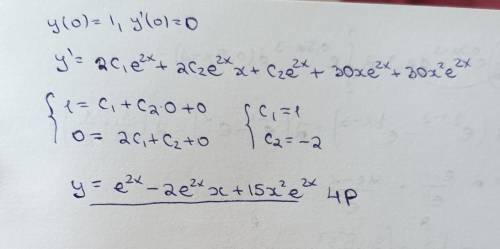 y(0)=1, y'(0)=0
y' = 2C₁e²ˣ + 2C₂e²ˣx + C₂e²ˣ + 30xe²ˣ + 30x²e²ˣ
{ 1 = C₁ + C₂·0 + 0 { C₁ = 1
0 = 2C₁ + C₂ + 0 C₂ = -2
y = e²ˣ - 2e²ˣx + 15x²e²ˣ 4P